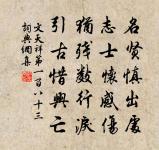 名賢慎出處
志士懷感傷
猶殘數行淚
引古惜興亡
文天祥第一百八十三
詞典網集